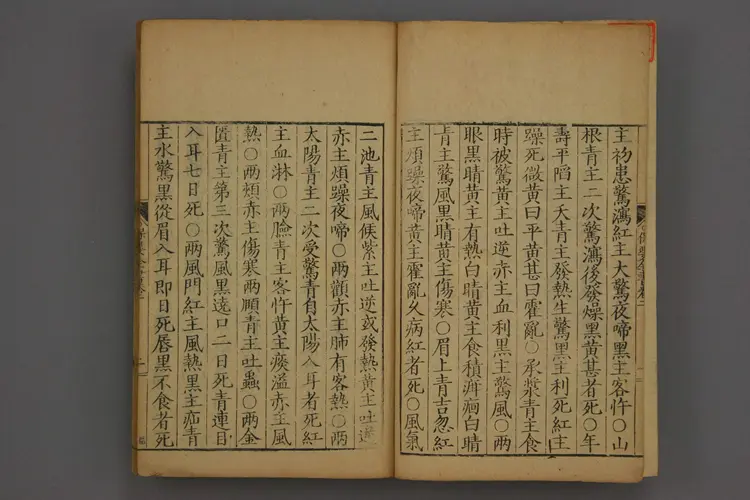 主初患驚瀉紅主大驚夜啼黑主客忤○山
根青主二次驚瀉後發燥黑黃甚者死○年
壽平陷主夭青主發熱生驚黑主利死紅主
躁死微黃曰平黃甚曰霍亂○承漿青主食
時被驚黃主吐逆赤主血利黑主驚風○兩
眼黑睛黃主有熱白睛黃主食積疳痼白睛
青主驚風黑睛黃主傷寒○眉上青吉忽紅
主煩躁夜啼黃主霍亂久病紅者死○風氣
二池青主風候紫主吐逆或發熱黃主吐逆
赤主煩躁夜啼○兩顴赤主肺有客熱○兩
太陽青主二次受驚青自太陽入耳者死紅
主血淋○兩臉青主客忤黃主痰溢赤主風
熱○兩頰赤主傷寒兩頤青主吐蟲○兩金
匱青主第三次驚風黑遶口二日死青連目
入耳七日死○兩風門紅主風熱黑主疝青
主水驚黑從眉入耳即日死唇黑不食者死